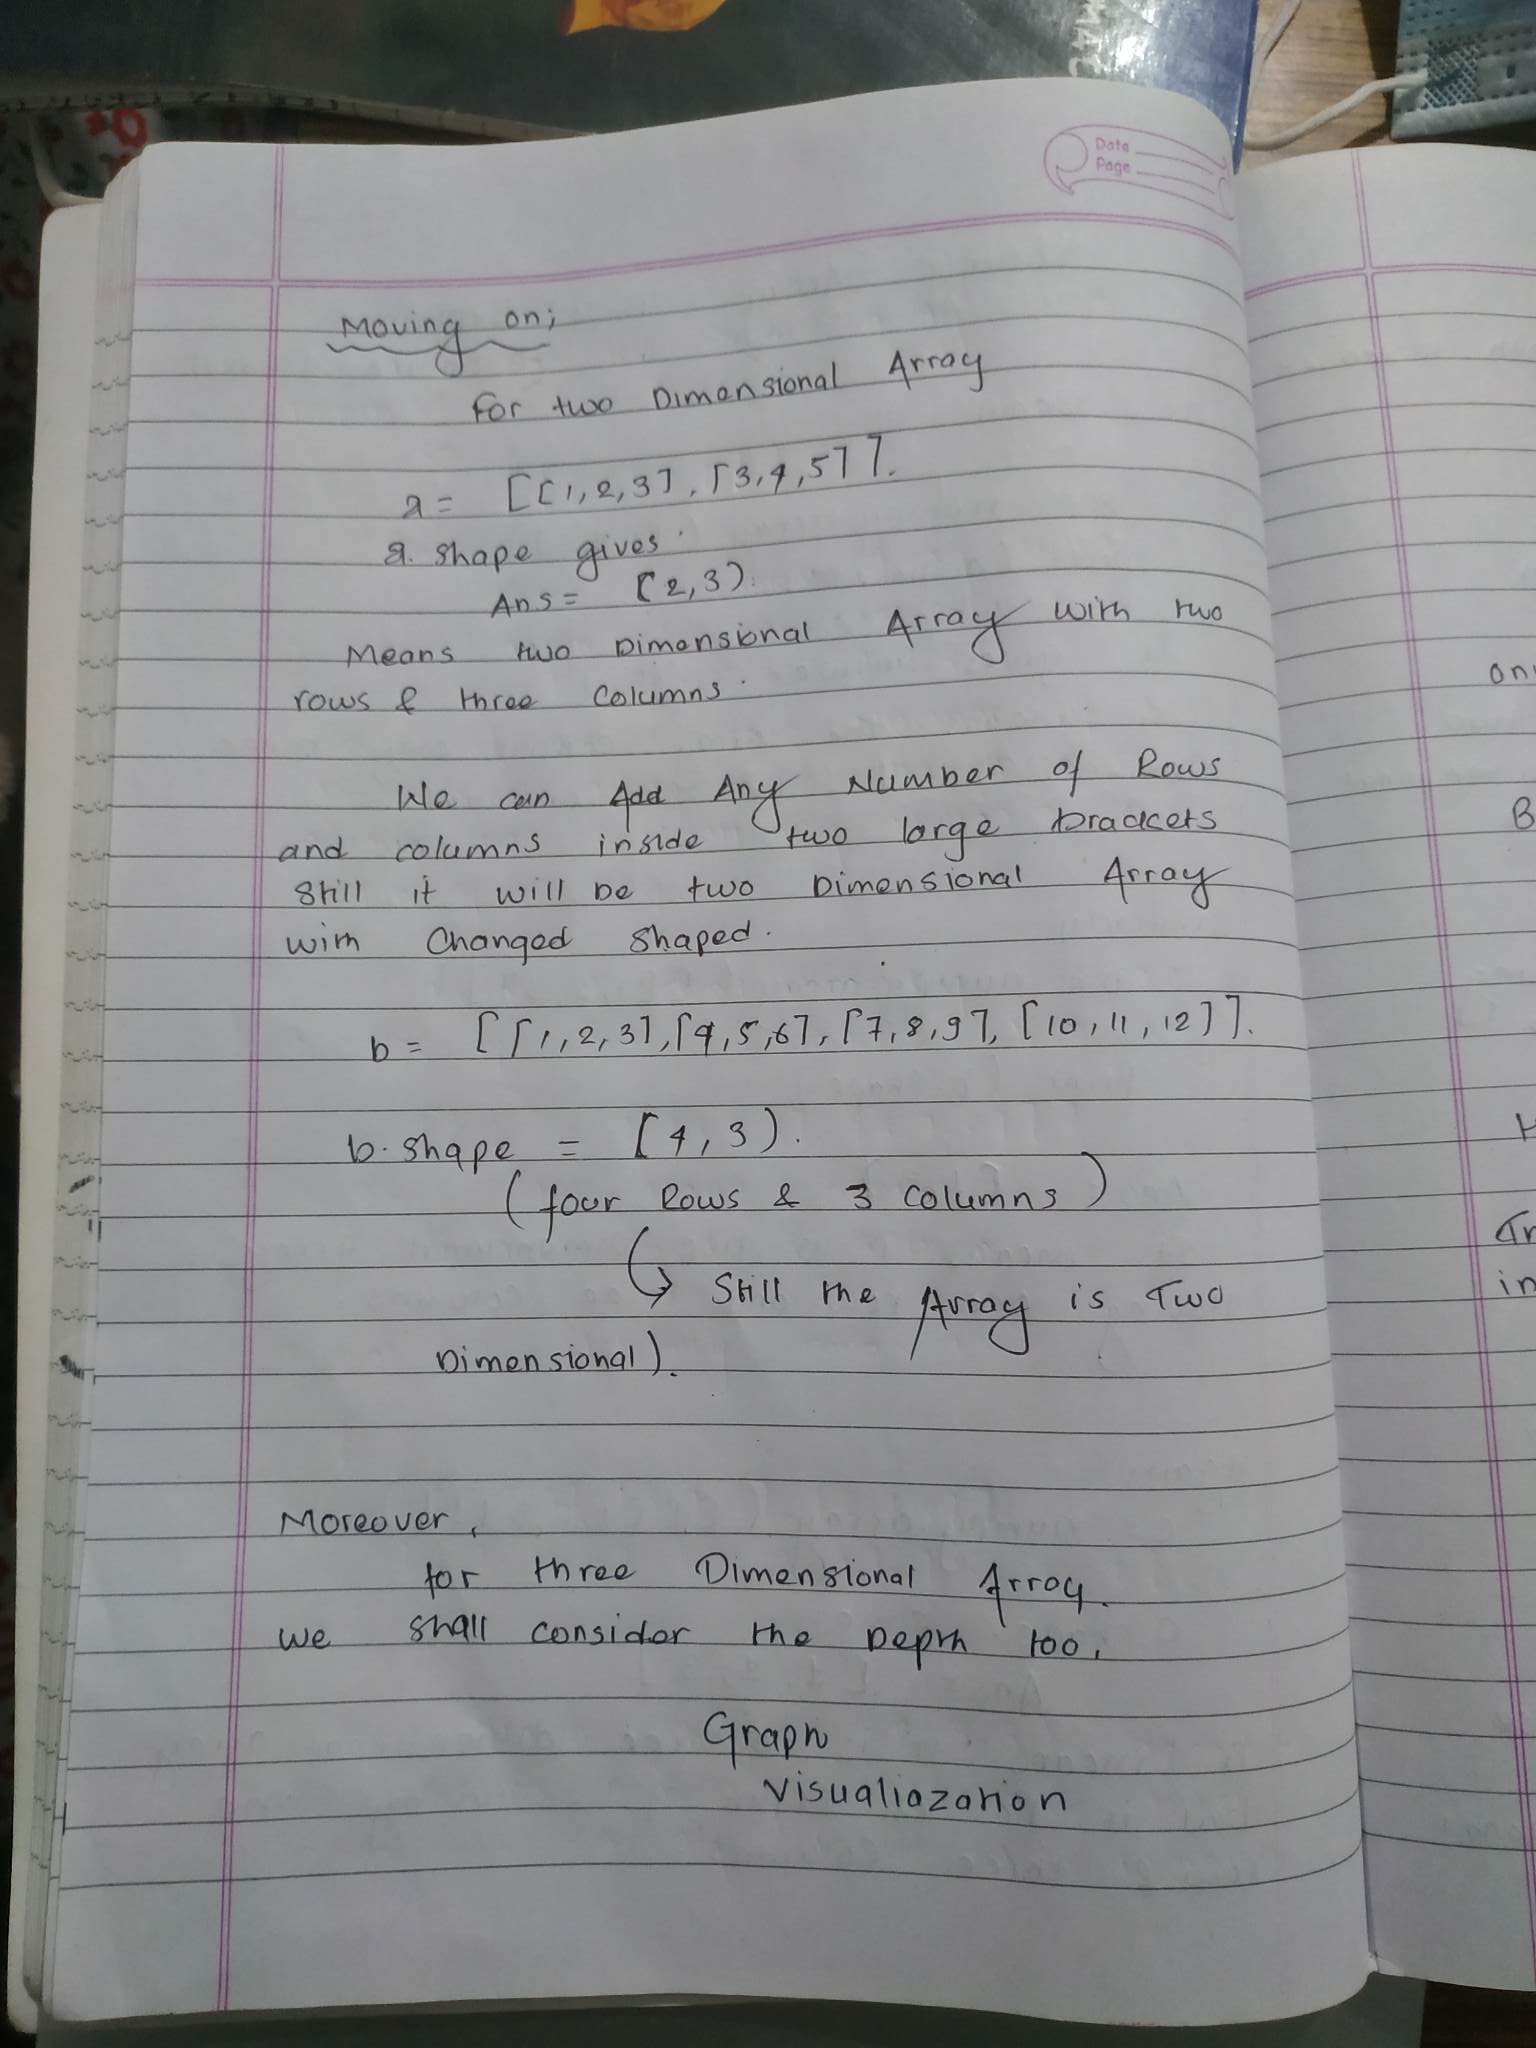 MAG
Date
Page
Moving on;
For two Dimensional Array
a = [[1,2,3], [3,4,5]].
a. shape gives.
Ans = [2,3).
Means two Dimensional Array with two
rows & three columns.
We can Add Any Number of Rows
and columns inside two large brackets
Still it will be two Dimensional Array
with Changed Shaped.
b = [[1,2,3],[4,5,6],[7,8,9],[10,11,12]].
b. shape = [4,3).
(four Rows & 3 columns)
Still the Array is Two
Dimensional).
Moreover,
for three Dimensional Array.
we shall consider the Depth too.
Graph
Visualiazation
in